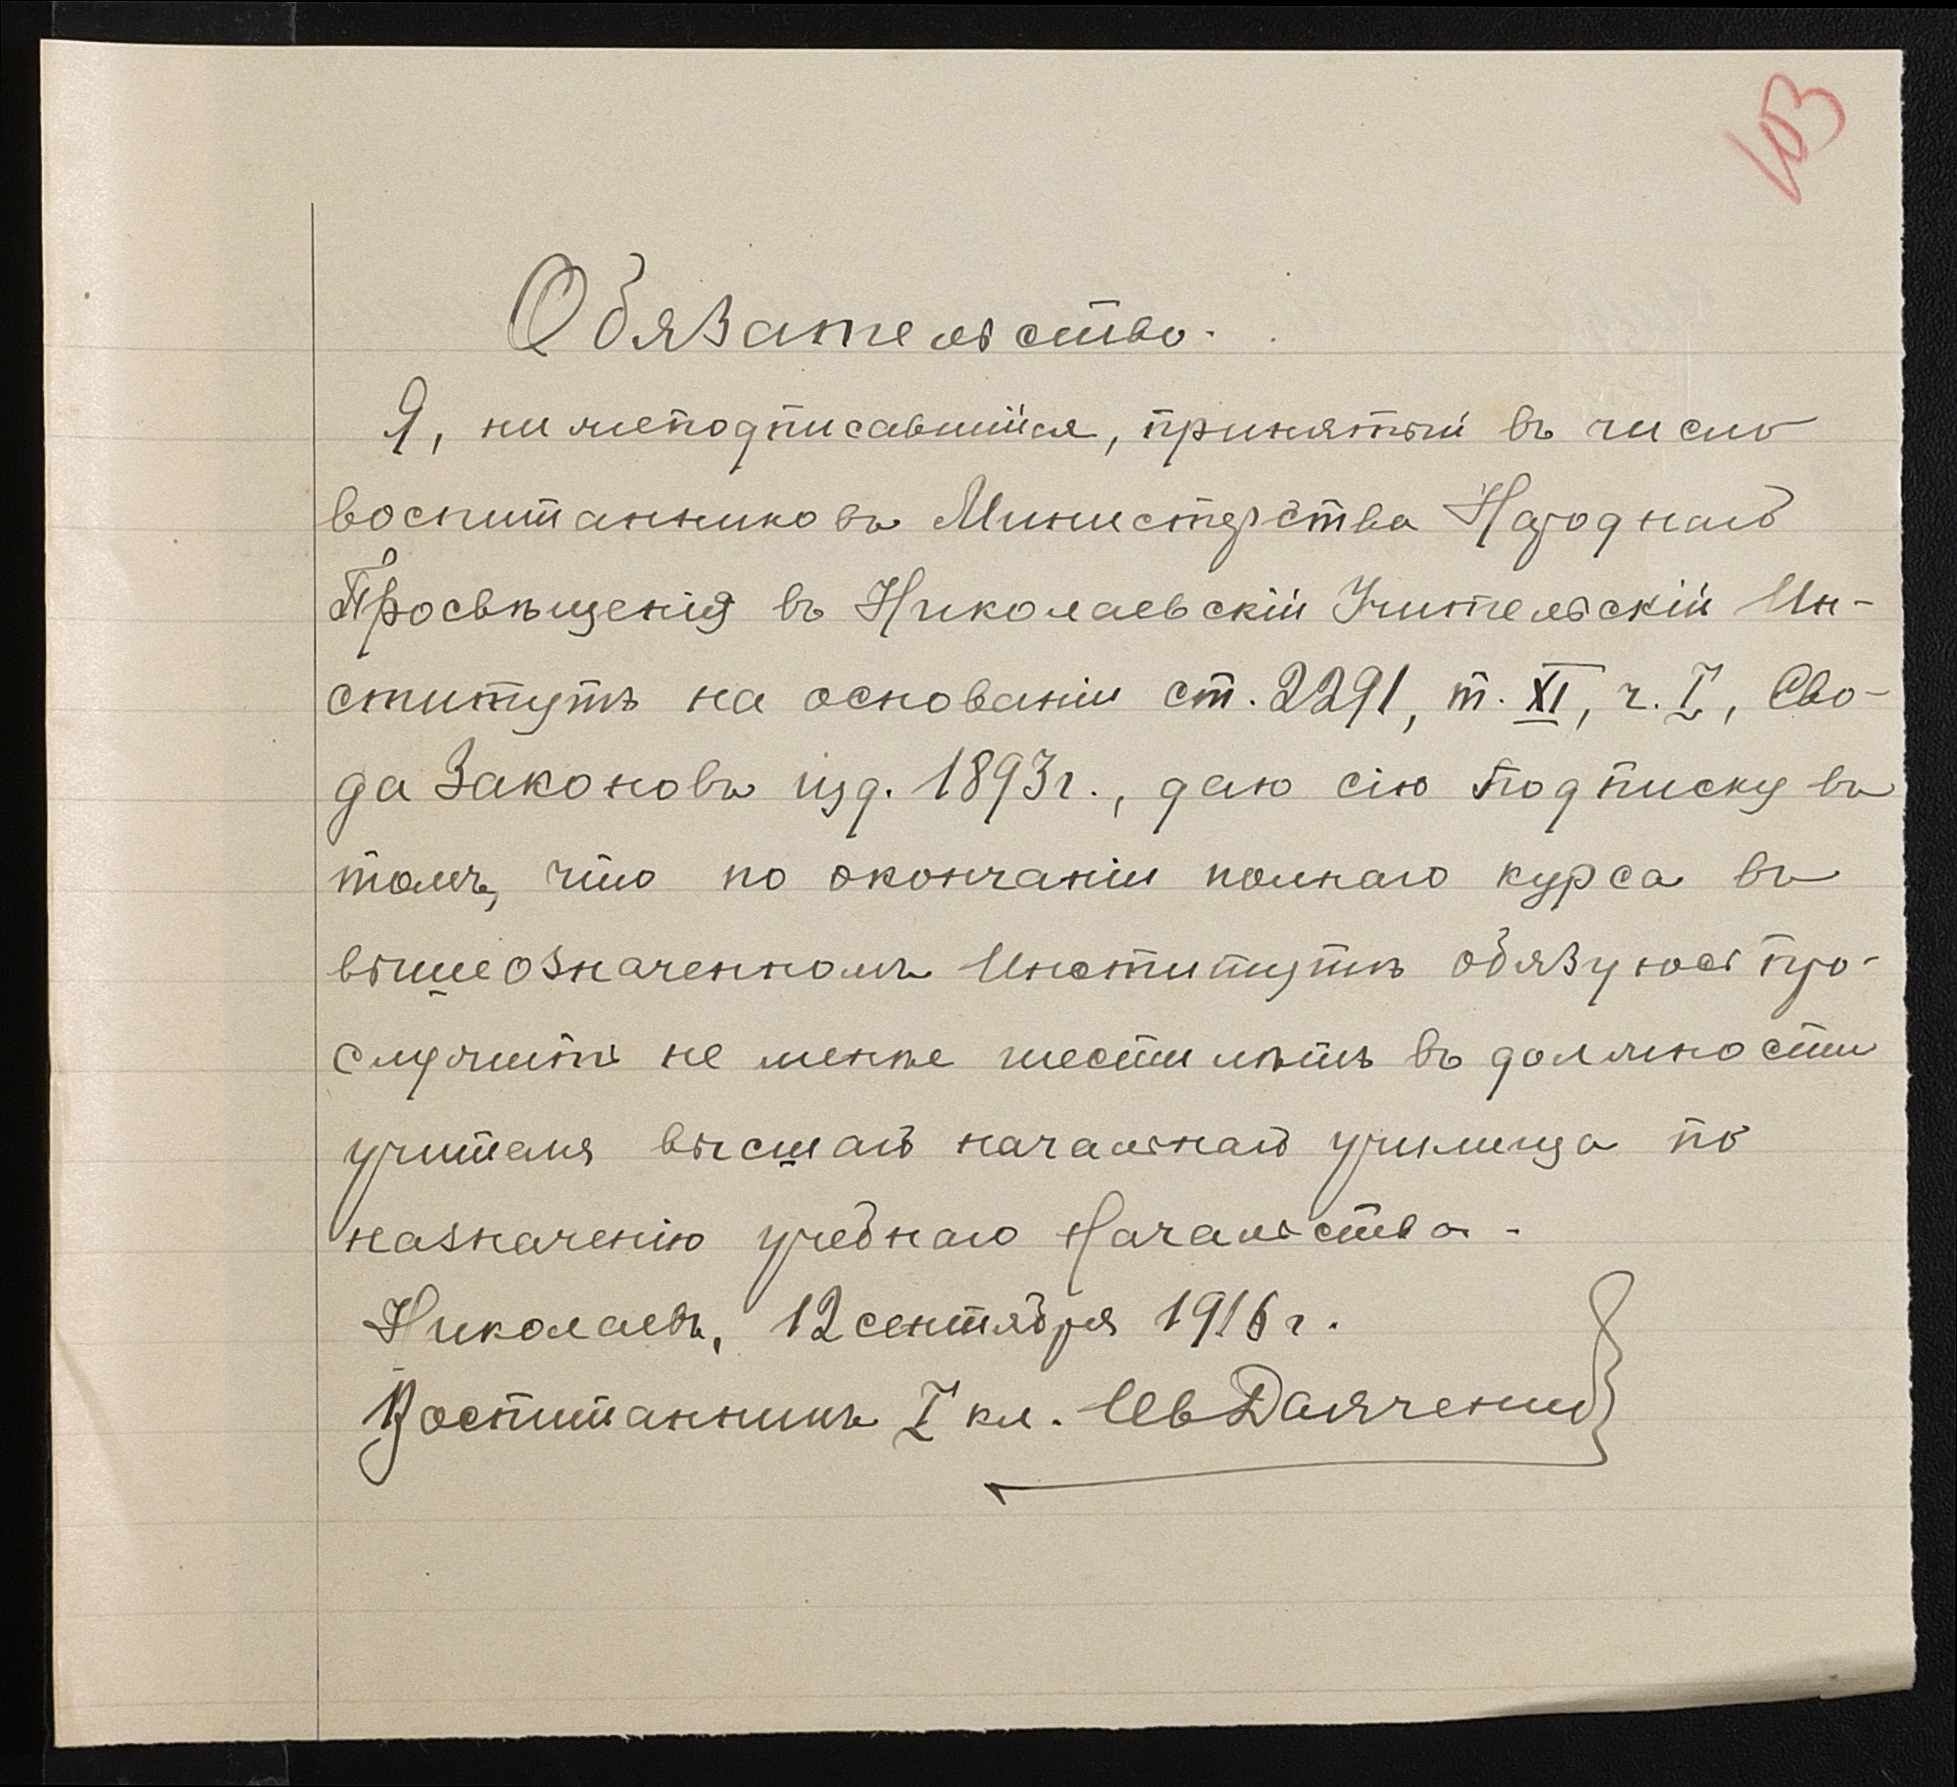 103
Обязательство.
Я, нижеподписавшійся, принятый въ число
воспитанниковъ Министерства Народнаго
Просвѣщенія въ Николаевскій Учительскій Ин-
ститутъ на основаніи ст. 2291, т. XI, ч. I, Сво-
да Законовъ изд. 1893 г., даю сію подписку въ
томъ, что по окончаніи полнаго курса въ
вышеозначенномъ Институтѣ обязуюсь про-
служить не менѣе шести лѣтъ въ должности
учителя высшаго начальнаго училища по
назначенію учебнаго Начальства.
Николаевъ, 12 сентября 1916 г.
Воспитанникъ I кл. Ив